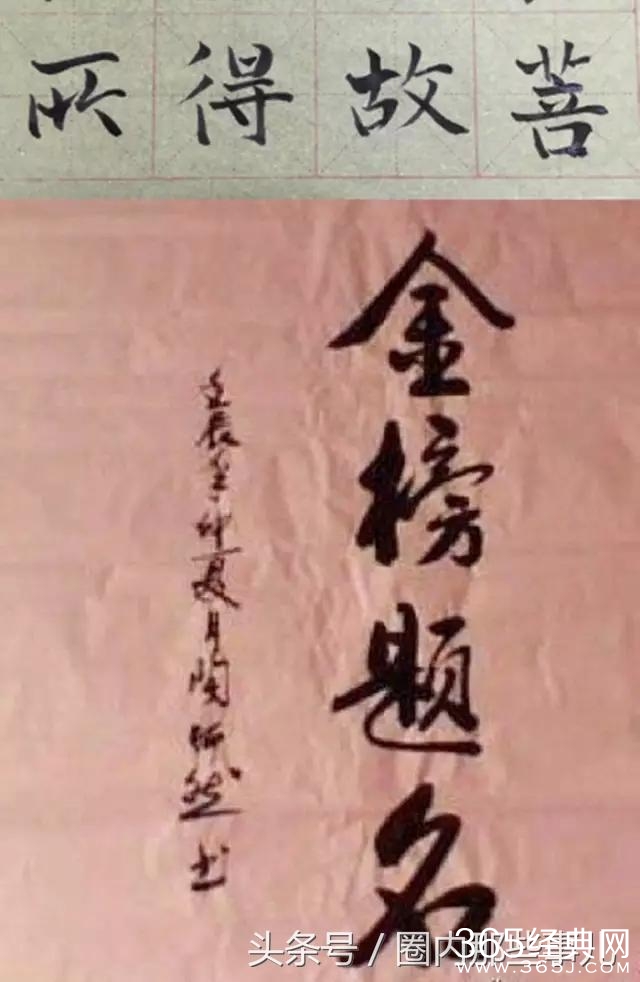 所得故菩
金榜题名
壬辰年仲夏月陶然书
头条号 / 圈内那些事儿
365经典网
WWW.365J.COM